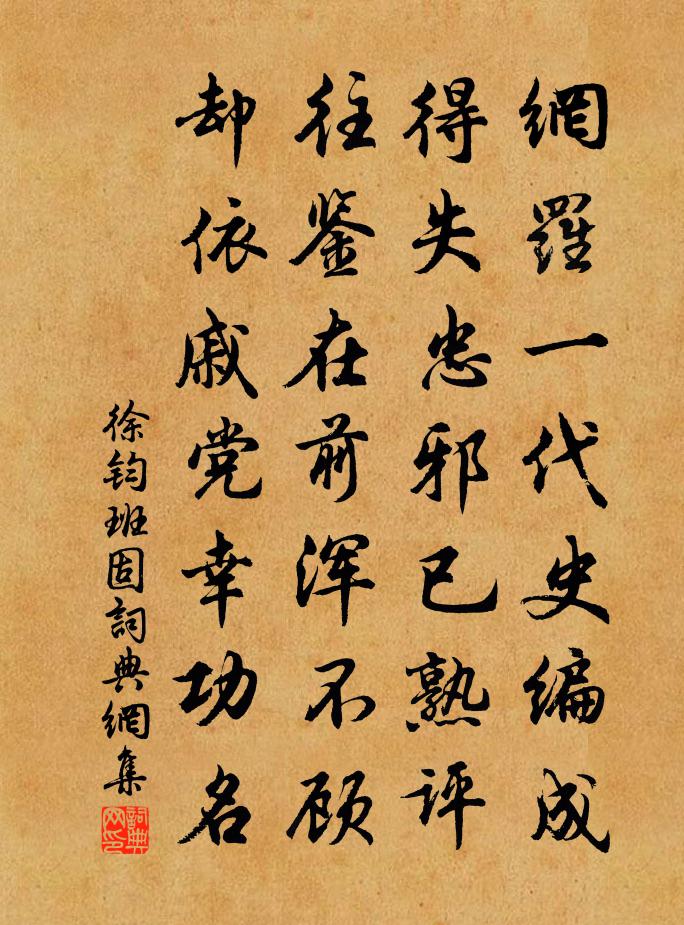 網羅一代史编成
得失忠邪已熟评
往鉴在前浑不顾
却依戚党幸功名
徐钧班固詞典網集
詞典网印